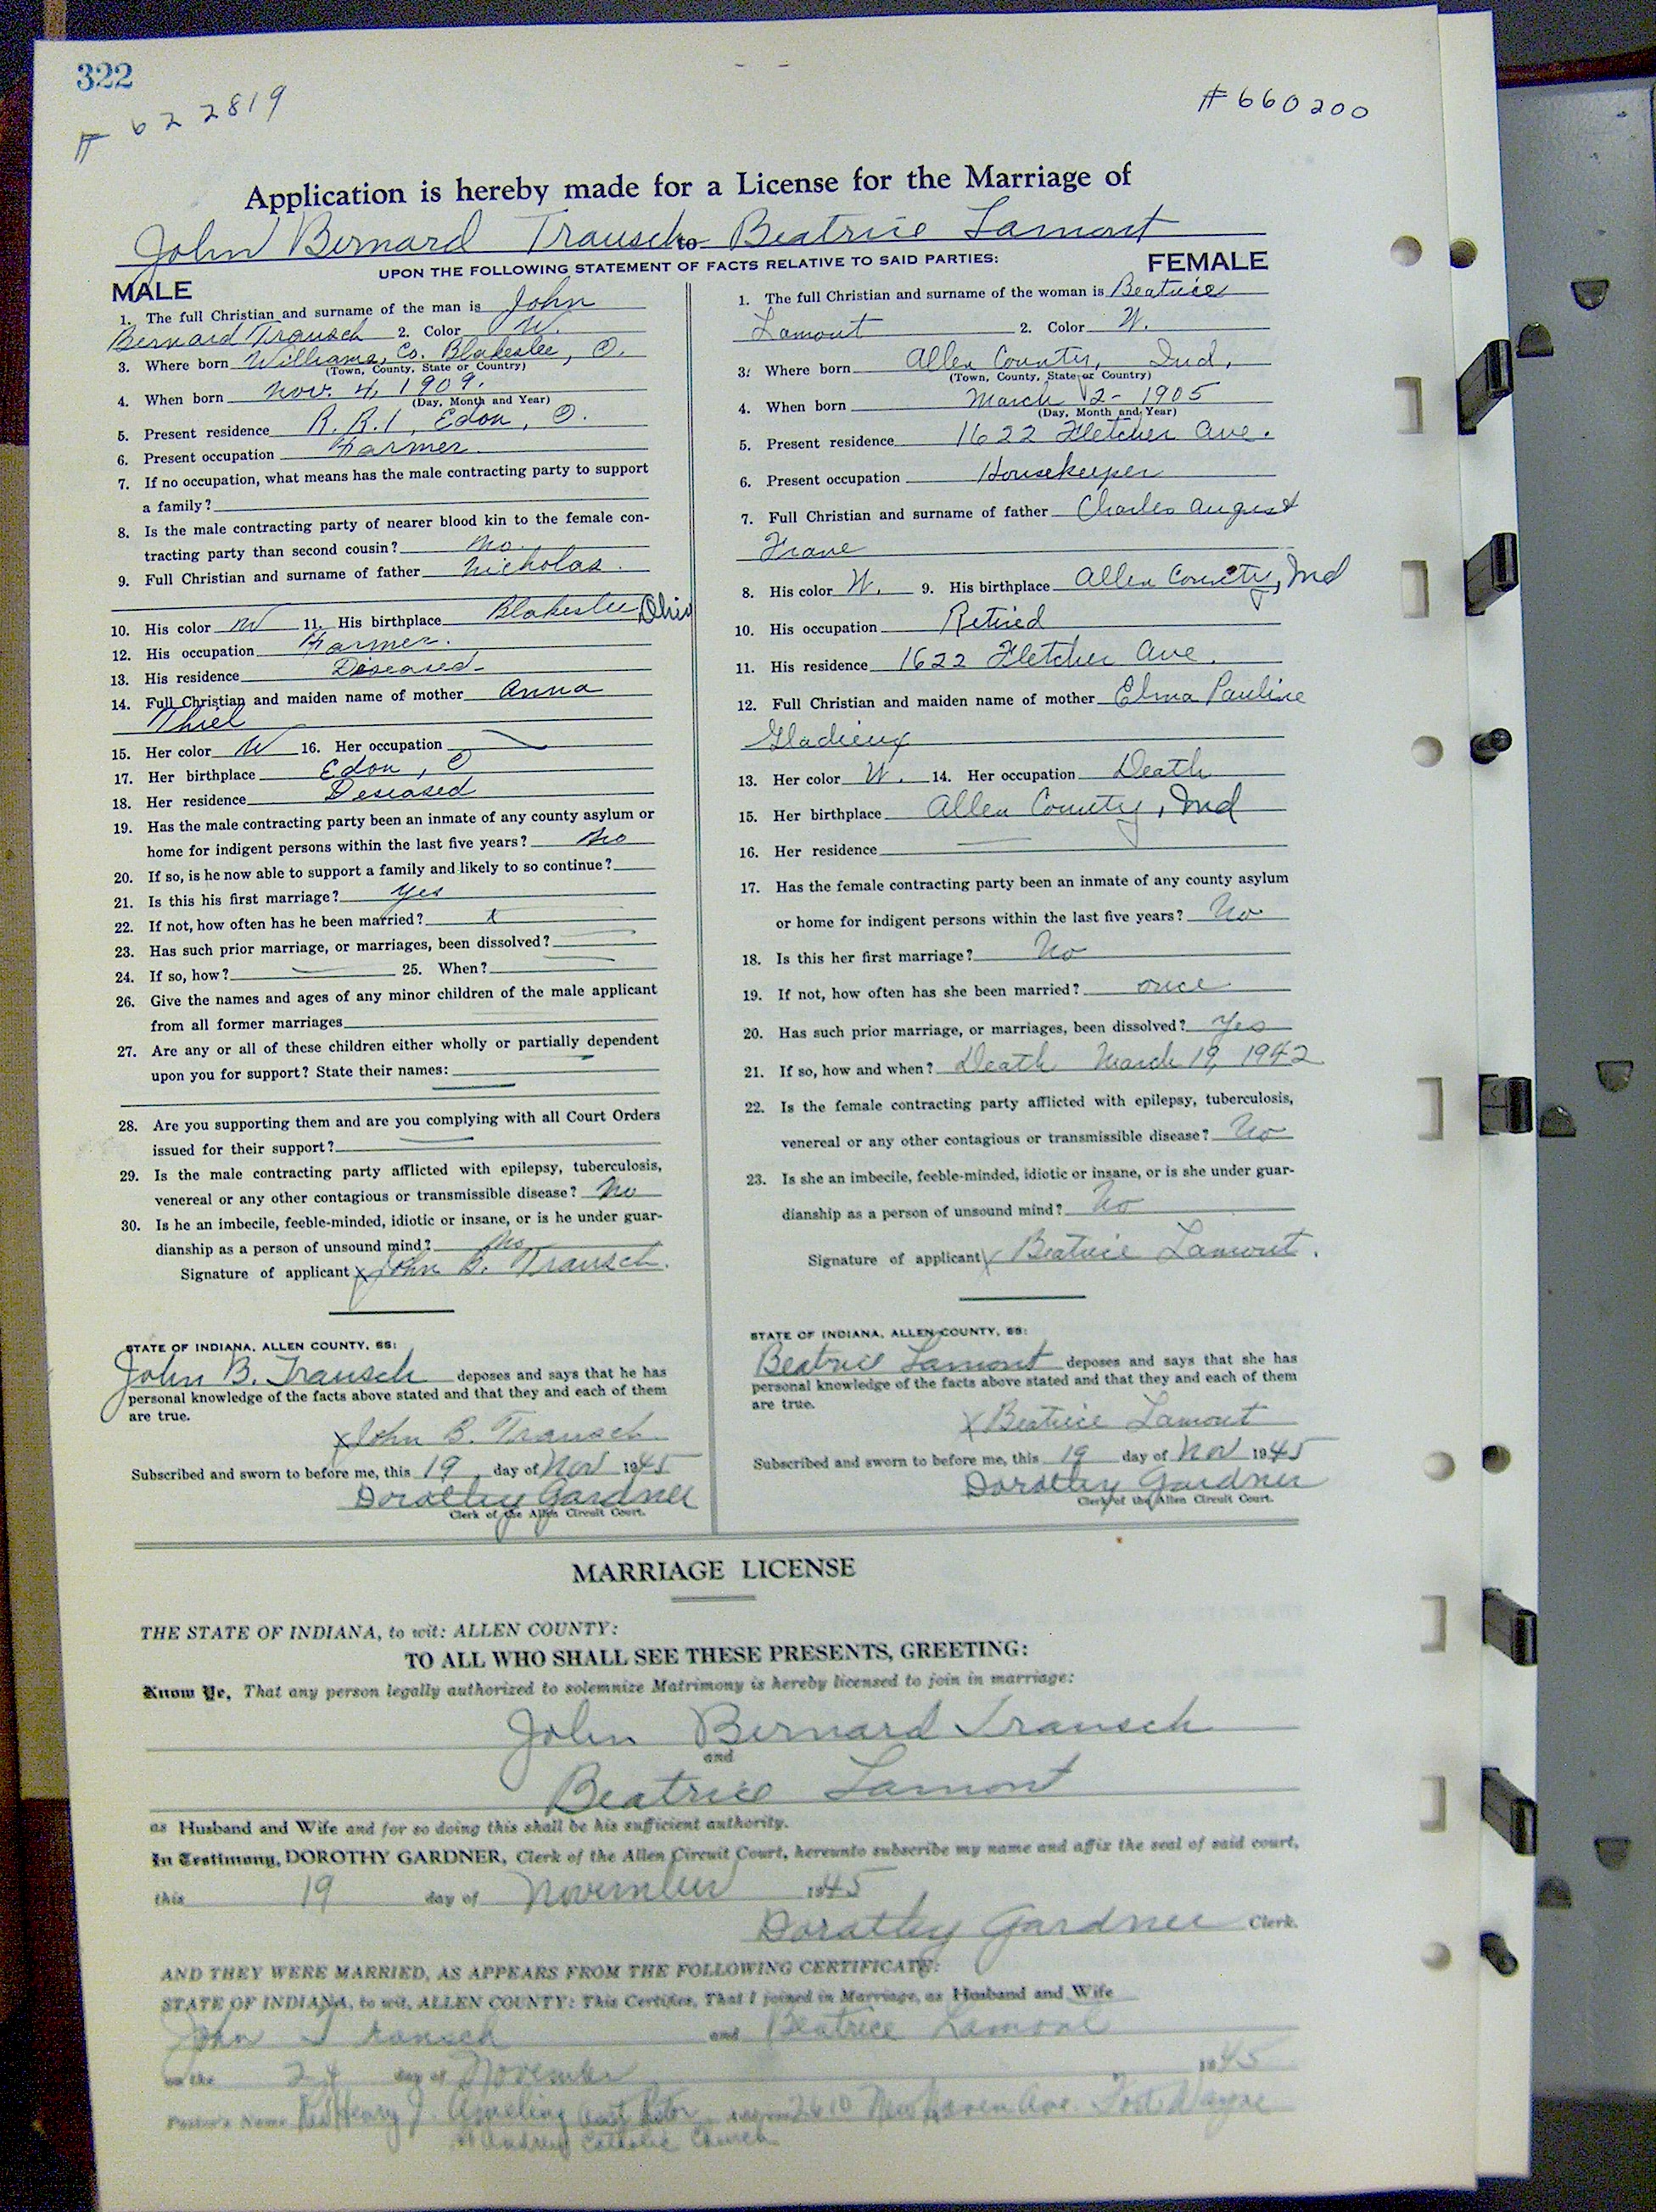 322
# 622819
# 660200
Application is hereby made for a License for the Marriage of
John Bernard Trausch to Beatrice Lamont
UPON THE FOLLOWING STATEMENT OF FACTS RELATIVE TO SAID PARTIES:
MALE
1. The full Christian and surname of the man is John
Bernard Trausch 2. Color W.
3. Where born Williams, Co. Blakeslee, O.
(Town, County, State or Country)
4. When born Nov. 4, 1909.
(Day, Month and Year)
5. Present residence R. R. 1, Edon, O.
6. Present occupation Farmer.
7. If no occupation, what means has the male contracting party to support
a family?
8. Is the male contracting party of nearer blood kin to the female con-
tracting party than second cousin? no.
9. Full Christian and surname of father Nicholas.
10. His color W 11. His birthplace Blakeslee, Ohio
12. His occupation Farmer.
13. His residence Diseased-
14. Full Christian and maiden name of mother Anna
Thiel
15. Her color W 16. Her occupation
17. Her birthplace Edon, O
18. Her residence Deseased
19. Has the male contracting party been an inmate of any county asylum or
home for indigent persons within the last five years? No
20. If so, is he now able to support a family and likely to so continue?
21. Is this his first marriage? Yes
22. If not, how often has he been married? x
23. Has such prior marriage, or marriages, been dissolved?
24. If so, how? 25. When?
26. Give the names and ages of any minor children of the male applicant
from all former marriages
27. Are any or all of these children either wholly or partially dependent
upon you for support? State their names:
28. Are you supporting them and are you complying with all Court Orders
issued for their support?
29. Is the male contracting party afflicted with epilepsy, tuberculosis,
venereal or any other contagious or transmissible disease? No
30. Is he an imbecile, feeble-minded, idiotic or insane, or is he under guar-
dianship as a person of unsound mind? No
Signature of applicant x John B. Trausch.
STATE OF INDIANA, ALLEN COUNTY, SS:
John B. Trausch deposes and says that he has
personal knowledge of the facts above stated and that they and each of them
are true.
x John B. Trausch
Subscribed and sworn to before me, this 19 day of Nov 1945
Dorothy Gardner
Clerk of the Allen Circuit Court.
FEMALE
1. The full Christian and surname of the woman is Beatrice
Lamont 2. Color W.
3. Where born Allen County, Ind.
(Town, County, State or Country)
4. When born March 12- 1905
(Day, Month and Year)
5. Present residence 1622 Fletcher Ave.
6. Present occupation Housekeeper
7. Full Christian and surname of father Charles August
Frane
8. His color W. 9. His birthplace Allen County, Ind
10. His occupation Retired
11. His residence 1622 Fletcher Ave.
12. Full Christian and maiden name of mother Elma Pauline
Gladieux
13. Her color W. 14. Her occupation Death
15. Her birthplace Allen County, Ind
16. Her residence
17. Has the female contracting party been an inmate of any county asylum
or home for indigent persons within the last five years? No
18. Is this her first marriage? No
19. If not, how often has she been married? once
20. Has such prior marriage, or marriages, been dissolved? Yes
21. If so, how and when? Death March 19, 1942
22. Is the female contracting party afflicted with epilepsy, tuberculosis,
venereal or any other contagious or transmissible disease? No
23. Is she an imbecile, feeble-minded, idiotic or insane, or is she under guar-
dianship as a person of unsound mind? No
Signature of applicant x Beatrice Lamont.
STATE OF INDIANA, ALLEN COUNTY, SS:
Beatrice Lamont deposes and says that she has
personal knowledge of the facts above stated and that they and each of them
are true.
x Beatrice Lamont
Subscribed and sworn to before me, this 19 day of Nov 1945
Dorothy Gardner
Clerk of the Allen Circuit Court.
MARRIAGE LICENSE
THE STATE OF INDIANA, to wit: ALLEN COUNTY:
TO ALL WHO SHALL SEE THESE PRESENTS, GREETING:
Know Ye, That any person legally authorized to solemnize Matrimony is hereby licensed to join in marriage:
John Bernard Trausch
and
Beatrice Lamont
as Husband and Wife and for so doing this shall be his sufficient authority.
In Testimony, DOROTHY GARDNER, Clerk of the Allen Circuit Court, hereunto subscribe my name and affix the seal of said court,
this 19 day of November 1945
Dorothy Gardner Clerk.
AND THEY WERE MARRIED, AS APPEARS FROM THE FOLLOWING CERTIFICATE:
STATE OF INDIANA, to wit, ALLEN COUNTY: This Certifies, That I joined in Marriage, as Husband and Wife
John Trausch and Beatrice Lamont
on the 24 day of November 1945
Pastor's Name Rev Henry J. Ameling Asst Pastor Address 2610 New Haven Ave. Fort Wayne
St Andrew Catholic Church